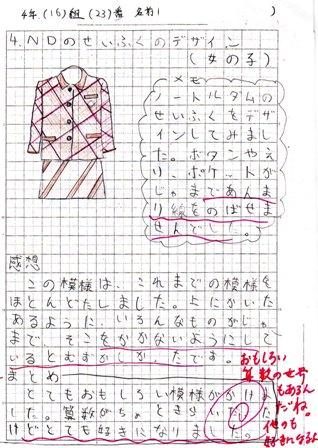 4年.(16)組 (23)番 名前( )
4.NDのせいふくのデザイン
(女の子)
メモ
ノートルダムの
せいふくをデザ
インしてみまし
た。ボタンやえ
り、ポケットが
じゃまであんま
り線をのばせま
せんでした。
感想
この模様は、これまでの模様を
ほとんどたしました。上にかいた
あるように、いろんなものがじゃ
まで、そこをかかないようにして
いるとむずかしかったです。
まとめ
とてもおもしろい模様がかけま
した。算数がちょときらいだっ
けどとても好きになりました。
おもしろい
算数の世界
もあるん
だね。
他のも
好きになるよ